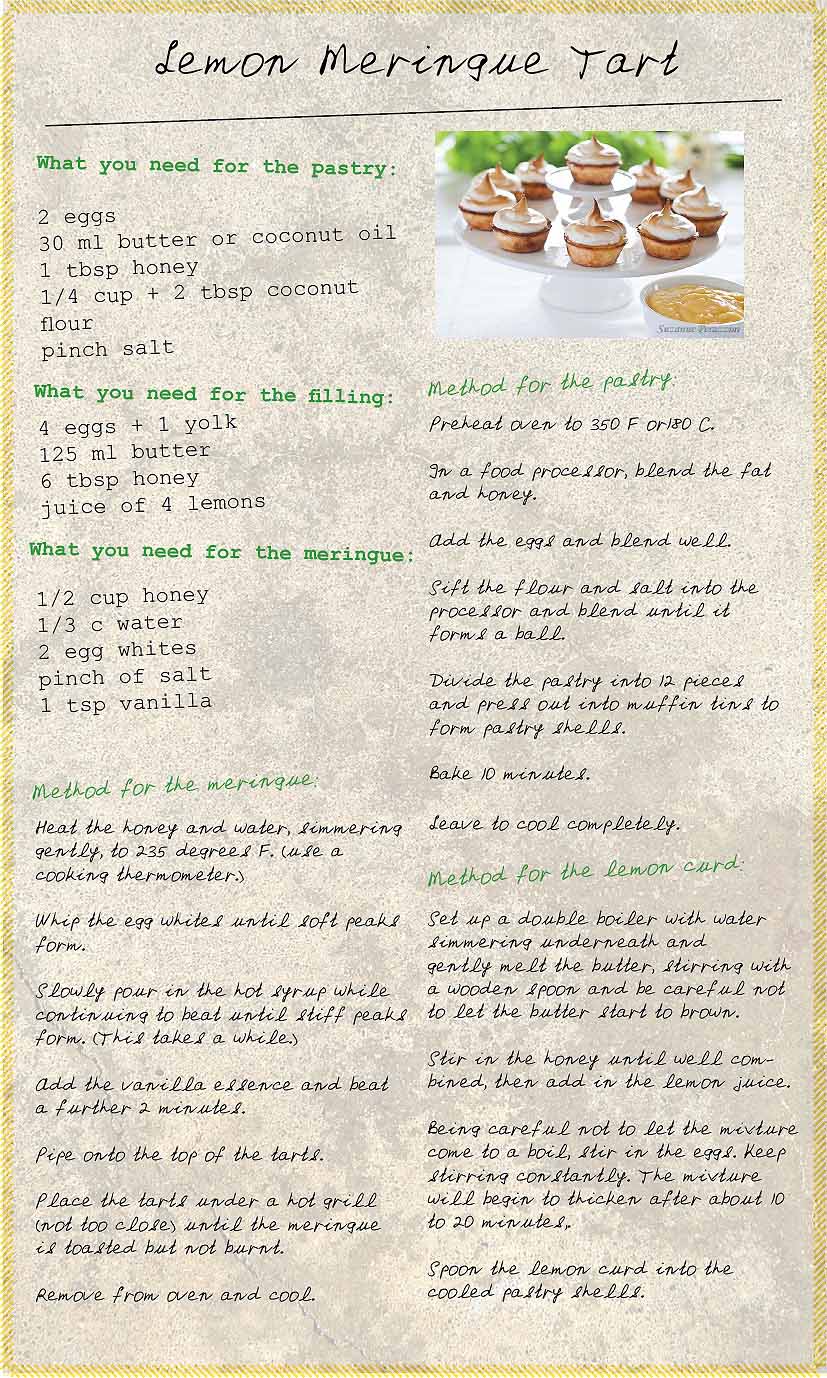 Lemon Meringue Tart
What you need for the pastry:
2 eggs
30 ml butter or coconut oil
1 tbsp honey
1/4 cup + 2 tbsp coconut
flour
pinch salt
What you need for the filling:
4 eggs + 1 yolk
125 ml butter
6 tbsp honey
juice of 4 lemons
What you need for the meringue:
1/2 cup honey
1/3 c water
2 egg whites
pinch of salt
1 tsp vanilla
Suzanne Perazzini
Method for the pastry:
Preheat oven to 350 F or180 C.
In a food processor, blend the fat
and honey.
Add the eggs and blend well.
Sift the flour and salt into the
processor and blend until it
forms a ball.
Divide the pastry into 12 pieces
and press out into muffin tins to
form pastry shells.
Bake 10 minutes.
Leave to cool completely.
Method for the lemon curd:
Set up a double boiler with water
simmering underneath and
gently melt the butter, stirring with
a wooden spoon and be careful not
to let the butter start to brown.
Stir in the honey until well com-
bined, then add in the lemon juice.
Being careful not to let the mixture
come to a boil, stir in the eggs. Keep
stirring constantly. The mixture
will begin to thicken after about 10
to 20 minutes,.
Spoon the lemon curd into the
cooled pastry shells.
Method for the meringue:
Heat the honey and water, simmering
gently, to 235 degrees F. (use a
cooking thermometer.)
Whip the egg whites until soft peaks
form.
Slowly pour in the hot syrup while
continuing to beat until stiff peaks
form. (This takes a while.)
Add the vanilla essence and beat
a further 2 minutes.
Pipe onto the top of the tarts.
Place the tarts under a hot grill
(not too close) until the meringue
is toasted but not burnt.
Remove from oven and cool.